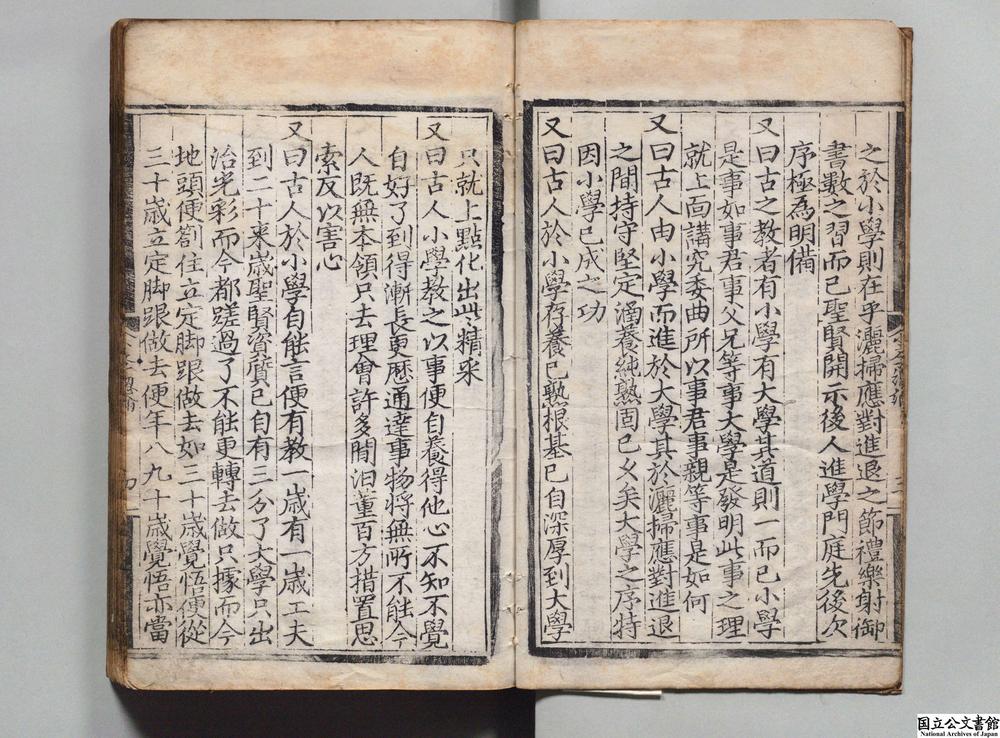 之於小學則在乎灑掃應對進退之節禮樂射御
書數之習而已聖賢開示後人進學門庭先後次
序極為明備
又曰古之教者有小學有大學其道則一而已小學
是事如事君事父兄等事大學是發明此事之理
就上面講究委曲所以事君事親等事是如何
又曰古人由小學而進於大學其於灑掃應對進退
之間持守堅定涵養純熟固已久矣大學之序特
因小學已成之功
又曰古人於小學存養已熟根基已自深厚到大學
只就上點化出些精采
又曰古人小學教之以事便自養得他心不知不覺
自好了到得漸長更歷通達事物将無所不能今
人既無本領只去理會許多閒汩董百方措置思
索反以害心
又曰古人於小學自能言便有教一歲有一歲工夫
到二十来歲聖賢資質已自有三分了大學只出
治光彩而今都蹉過了不能更轉去做只據而今
地頭便劄住立定脚跟做去如三十歲覺悟便從
三十歲立定脚跟做去便年八九十歲覺悟亦當
国立公文書館
National Archives of Japan